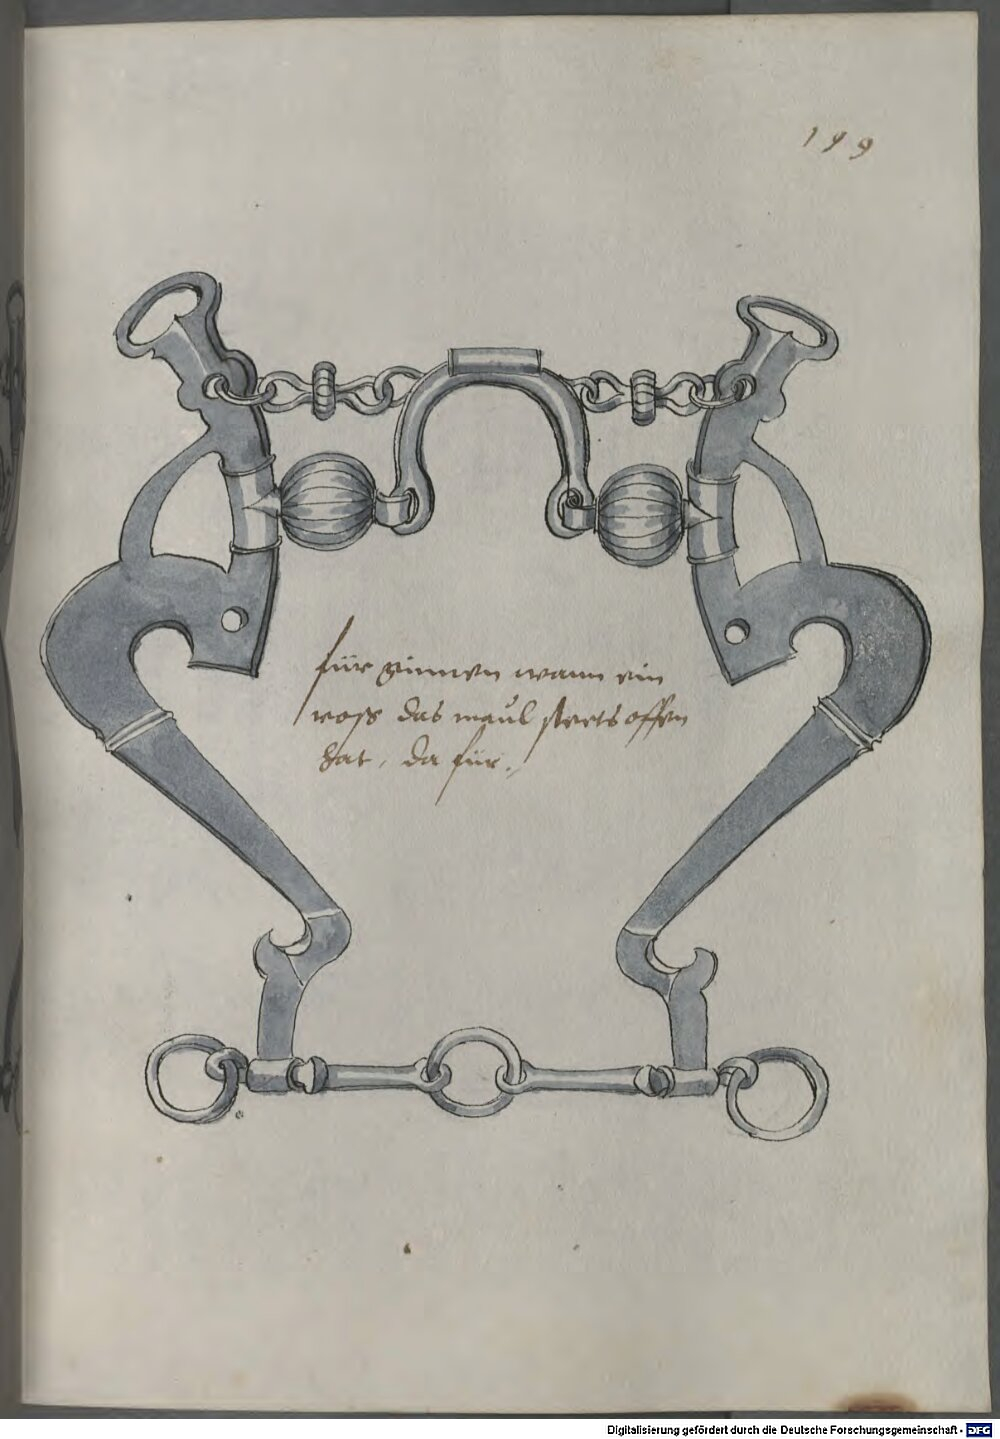 199
für ginnen wann ein
ross das maul steets offen
hat, da für.
Digitalisierung gefördert durch die Deutsche Forschungsgemeinschaft - DFG